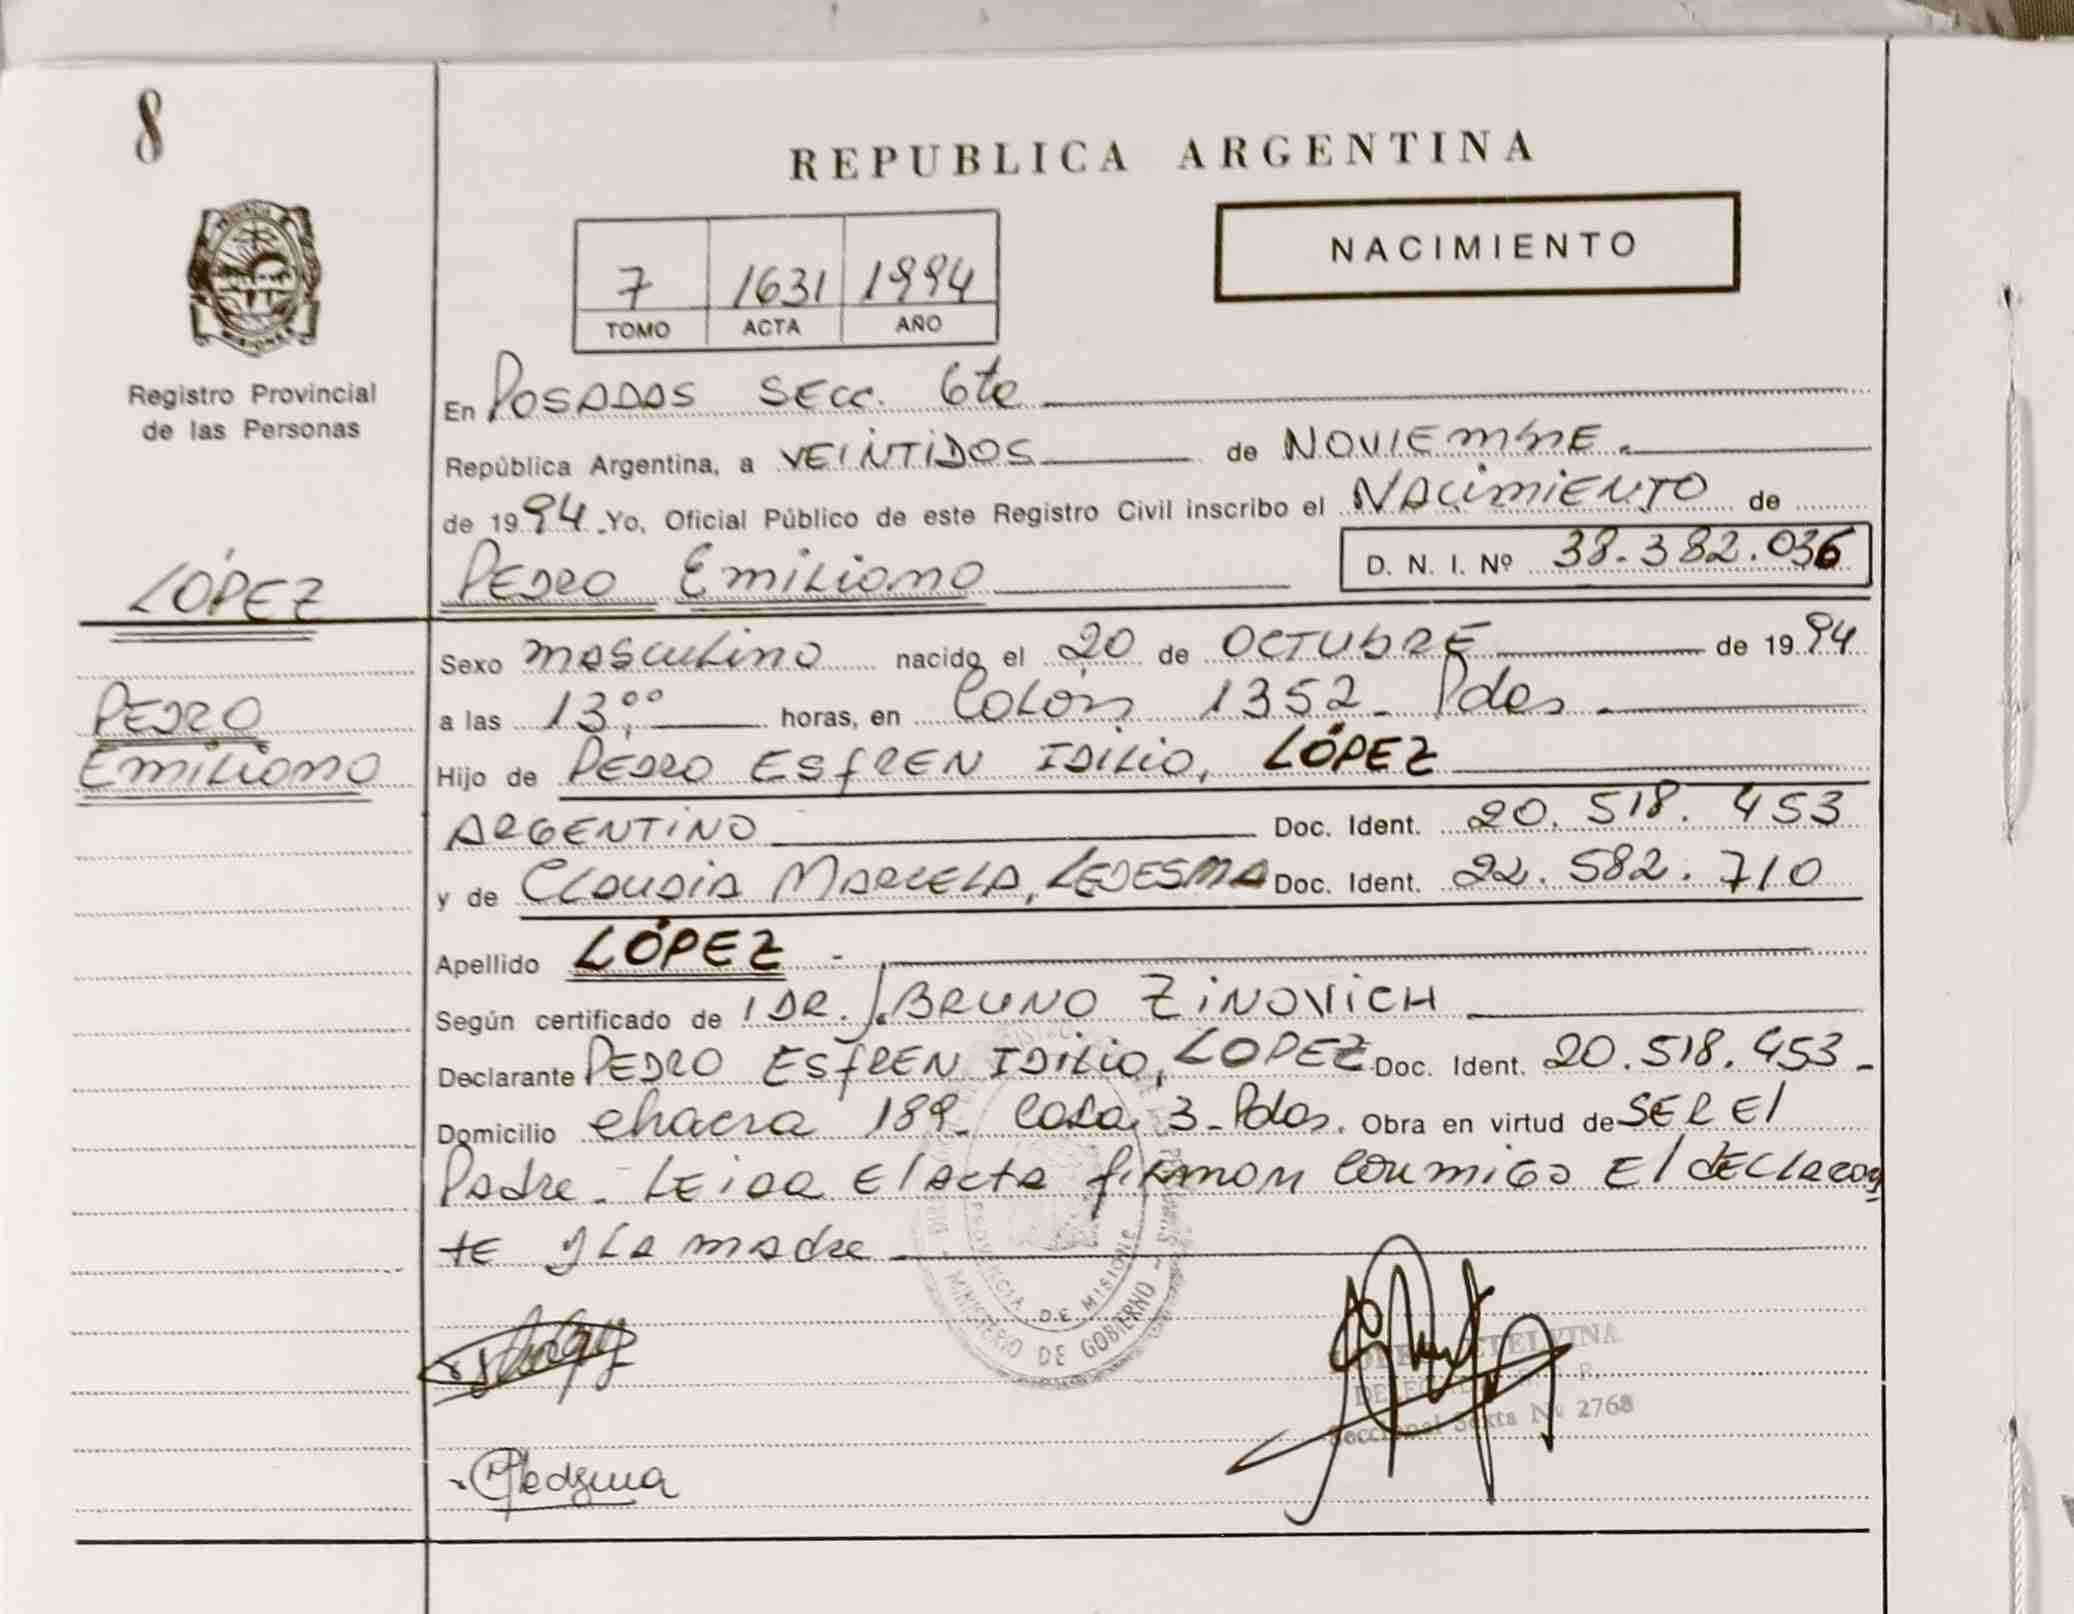 8
REPUBLICA ARGENTINA
NACIMIENTO
7 1631 1994
TOMO ACTA AÑO
PROVINCIA MISIONES
Registro Provincial
de las Personas
En POSADAS SECC. 6ta
República Argentina, a VEINTIDOS de NOVIEMBRE.
de 1994. Yo, Oficial Público de este Registro Civil inscribo el NACIMIENTO de
PEDRO Emiliano D. N. I. Nº 38.382.036
LÓPEZ
PEDRO
Emiliano
Sexo masculino nacido el 20 de OCTUBRE de 1994
a las 13:00 horas, en Colón 1352 - Pdas -
Hijo de PEDRO ESfREN IDILIO, LÓPEZ
ARGENTINO Doc. Ident. 20.518.453
y de CLAUDIA MARCELA, LEDESMA Doc. Ident. 22.582.710
Apellido LÓPEZ -
Según certificado de 1 DR. J. BRUNO ZINOVICH
Declarante PEDRO ESfREN IDILIO, LOPEZ Doc. Ident. 20.518.453 -
Domicilio chacra 189 - Casa 3 - Pdas. Obra en virtud de SER El
Padre - LEIDA El Acta firman conmigo El dECLaran
tE y La madre
PROVINCIA DE MISIONES
MINISTERIO DE GOBIERNO
ETELVINA
Seccional Sexta Nº 2768
Ledesma